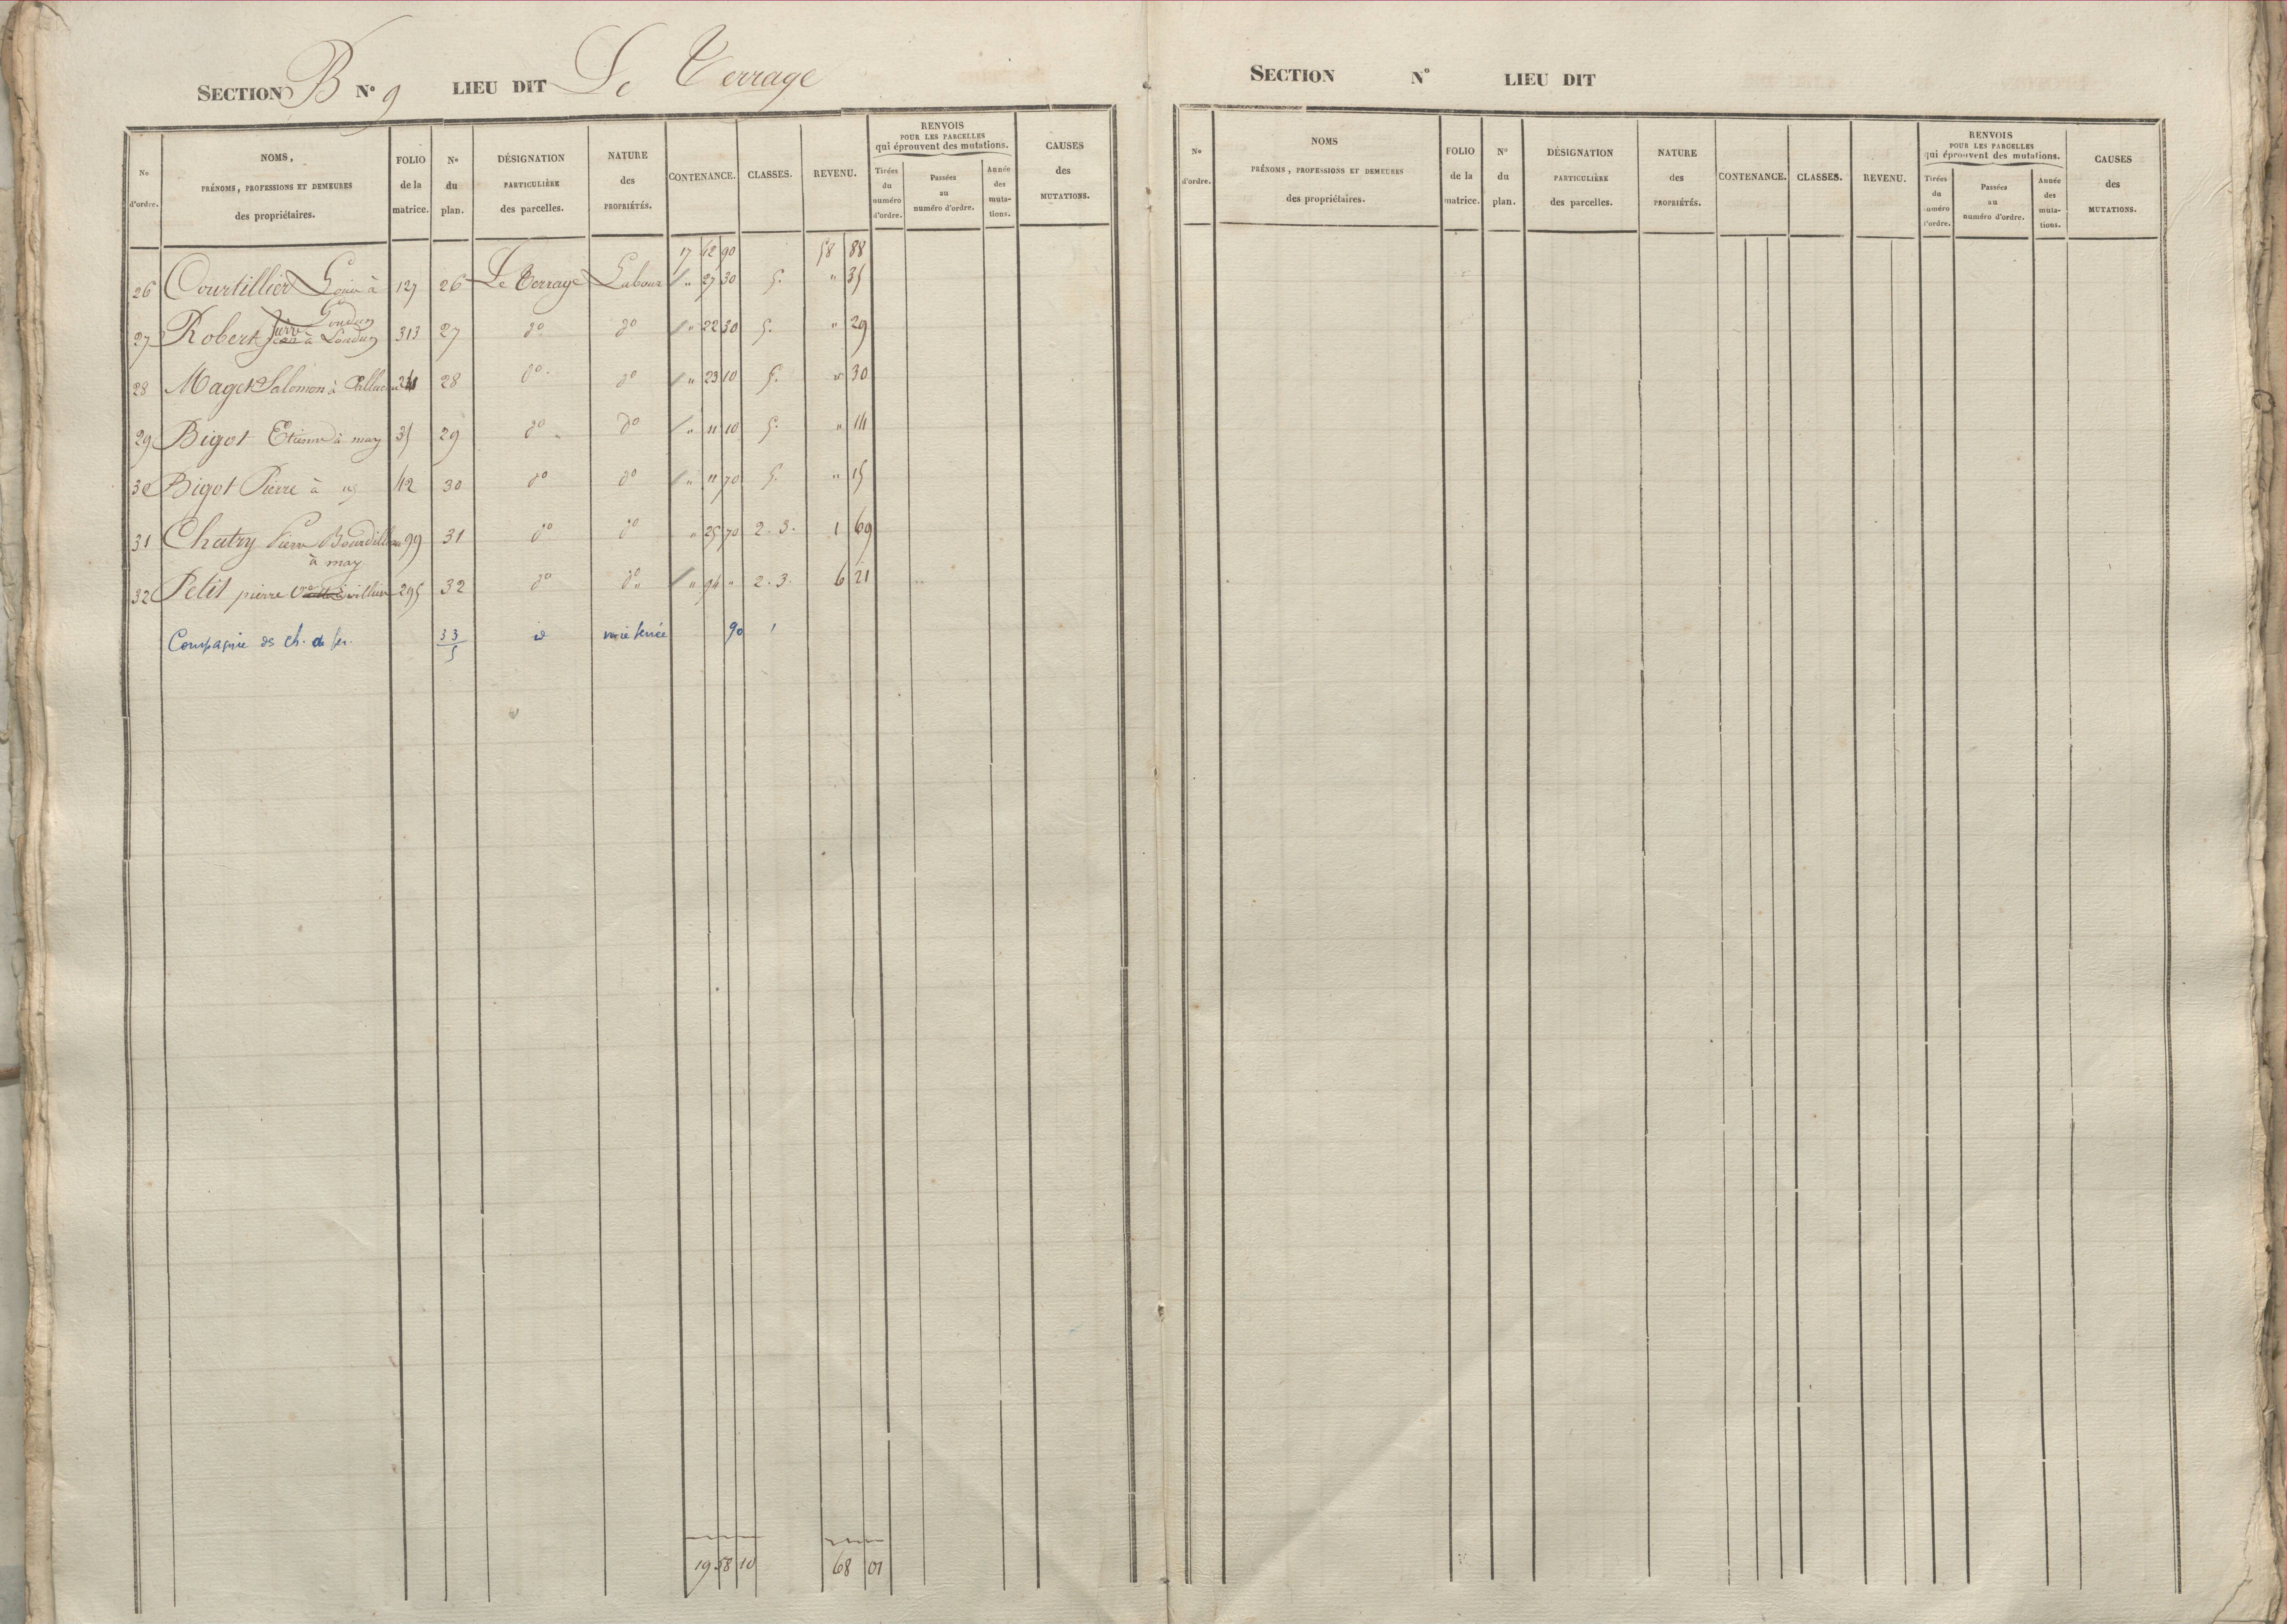 SECTION B N° 9 LIEU DIT Le Terrage
N° d'ordre.
NOMS, PRÉNOMS, PROFESSIONS ET DEMEURES des propriétaires.
FOLIO de la matrice.
N° du plan.
DÉSIGNATION PARTICULIÈRE des parcelles.
NATURE des PROPRIÉTÉS.
CONTENANCE.
CLASSES.
REVENU.
RENVOIS POUR LES PARCELLES qui éprouvent des mutations.
Tirées du numéro d'ordre.
Passées au numéro d'ordre.
Année des mutations.
CAUSES des MUTATIONS.
17 62 90 58 88
26 Courtillier Louis à Loudun 127 26 Le Terrage Labour " 27 30 5. " 35
27 Robert Jean à Loudun 313 27 do do " 22 30 5. " 29
28 Maget Salomon à 28 do do " 23 10 5. " 30
29 Bigot Etienne à may 35 29 do do " 11 10 5. " 14
30 Bigot Pierre à 42 30 do do " 11 70 5. " 15
31 Chatry Pierre Bourdilleau 99 31 do do " 25 70 2. 3. 1 69
à may
32 Petit pierre 295 32 do do " 94 " 2. 3. 6 21
Compagnie des ch. de fer. 33/5 id voie ferrée 90 1
19 58 10 68 01
SECTION N° LIEU DIT
N° d'ordre.
NOMS PRÉNOMS, PROFESSIONS ET DEMEURES des propriétaires.
FOLIO de la matrice.
N° du plan.
DÉSIGNATION PARTICULIÈRE des parcelles.
NATURE des PROPRIÉTÉS.
CONTENANCE.
CLASSES.
REVENU.
RENVOIS POUR LES PARCELLES qui éprouvent des mutations.
Tirées du numéro d'ordre.
Passées au numéro d'ordre.
Année des mutations.
CAUSES des MUTATIONS.